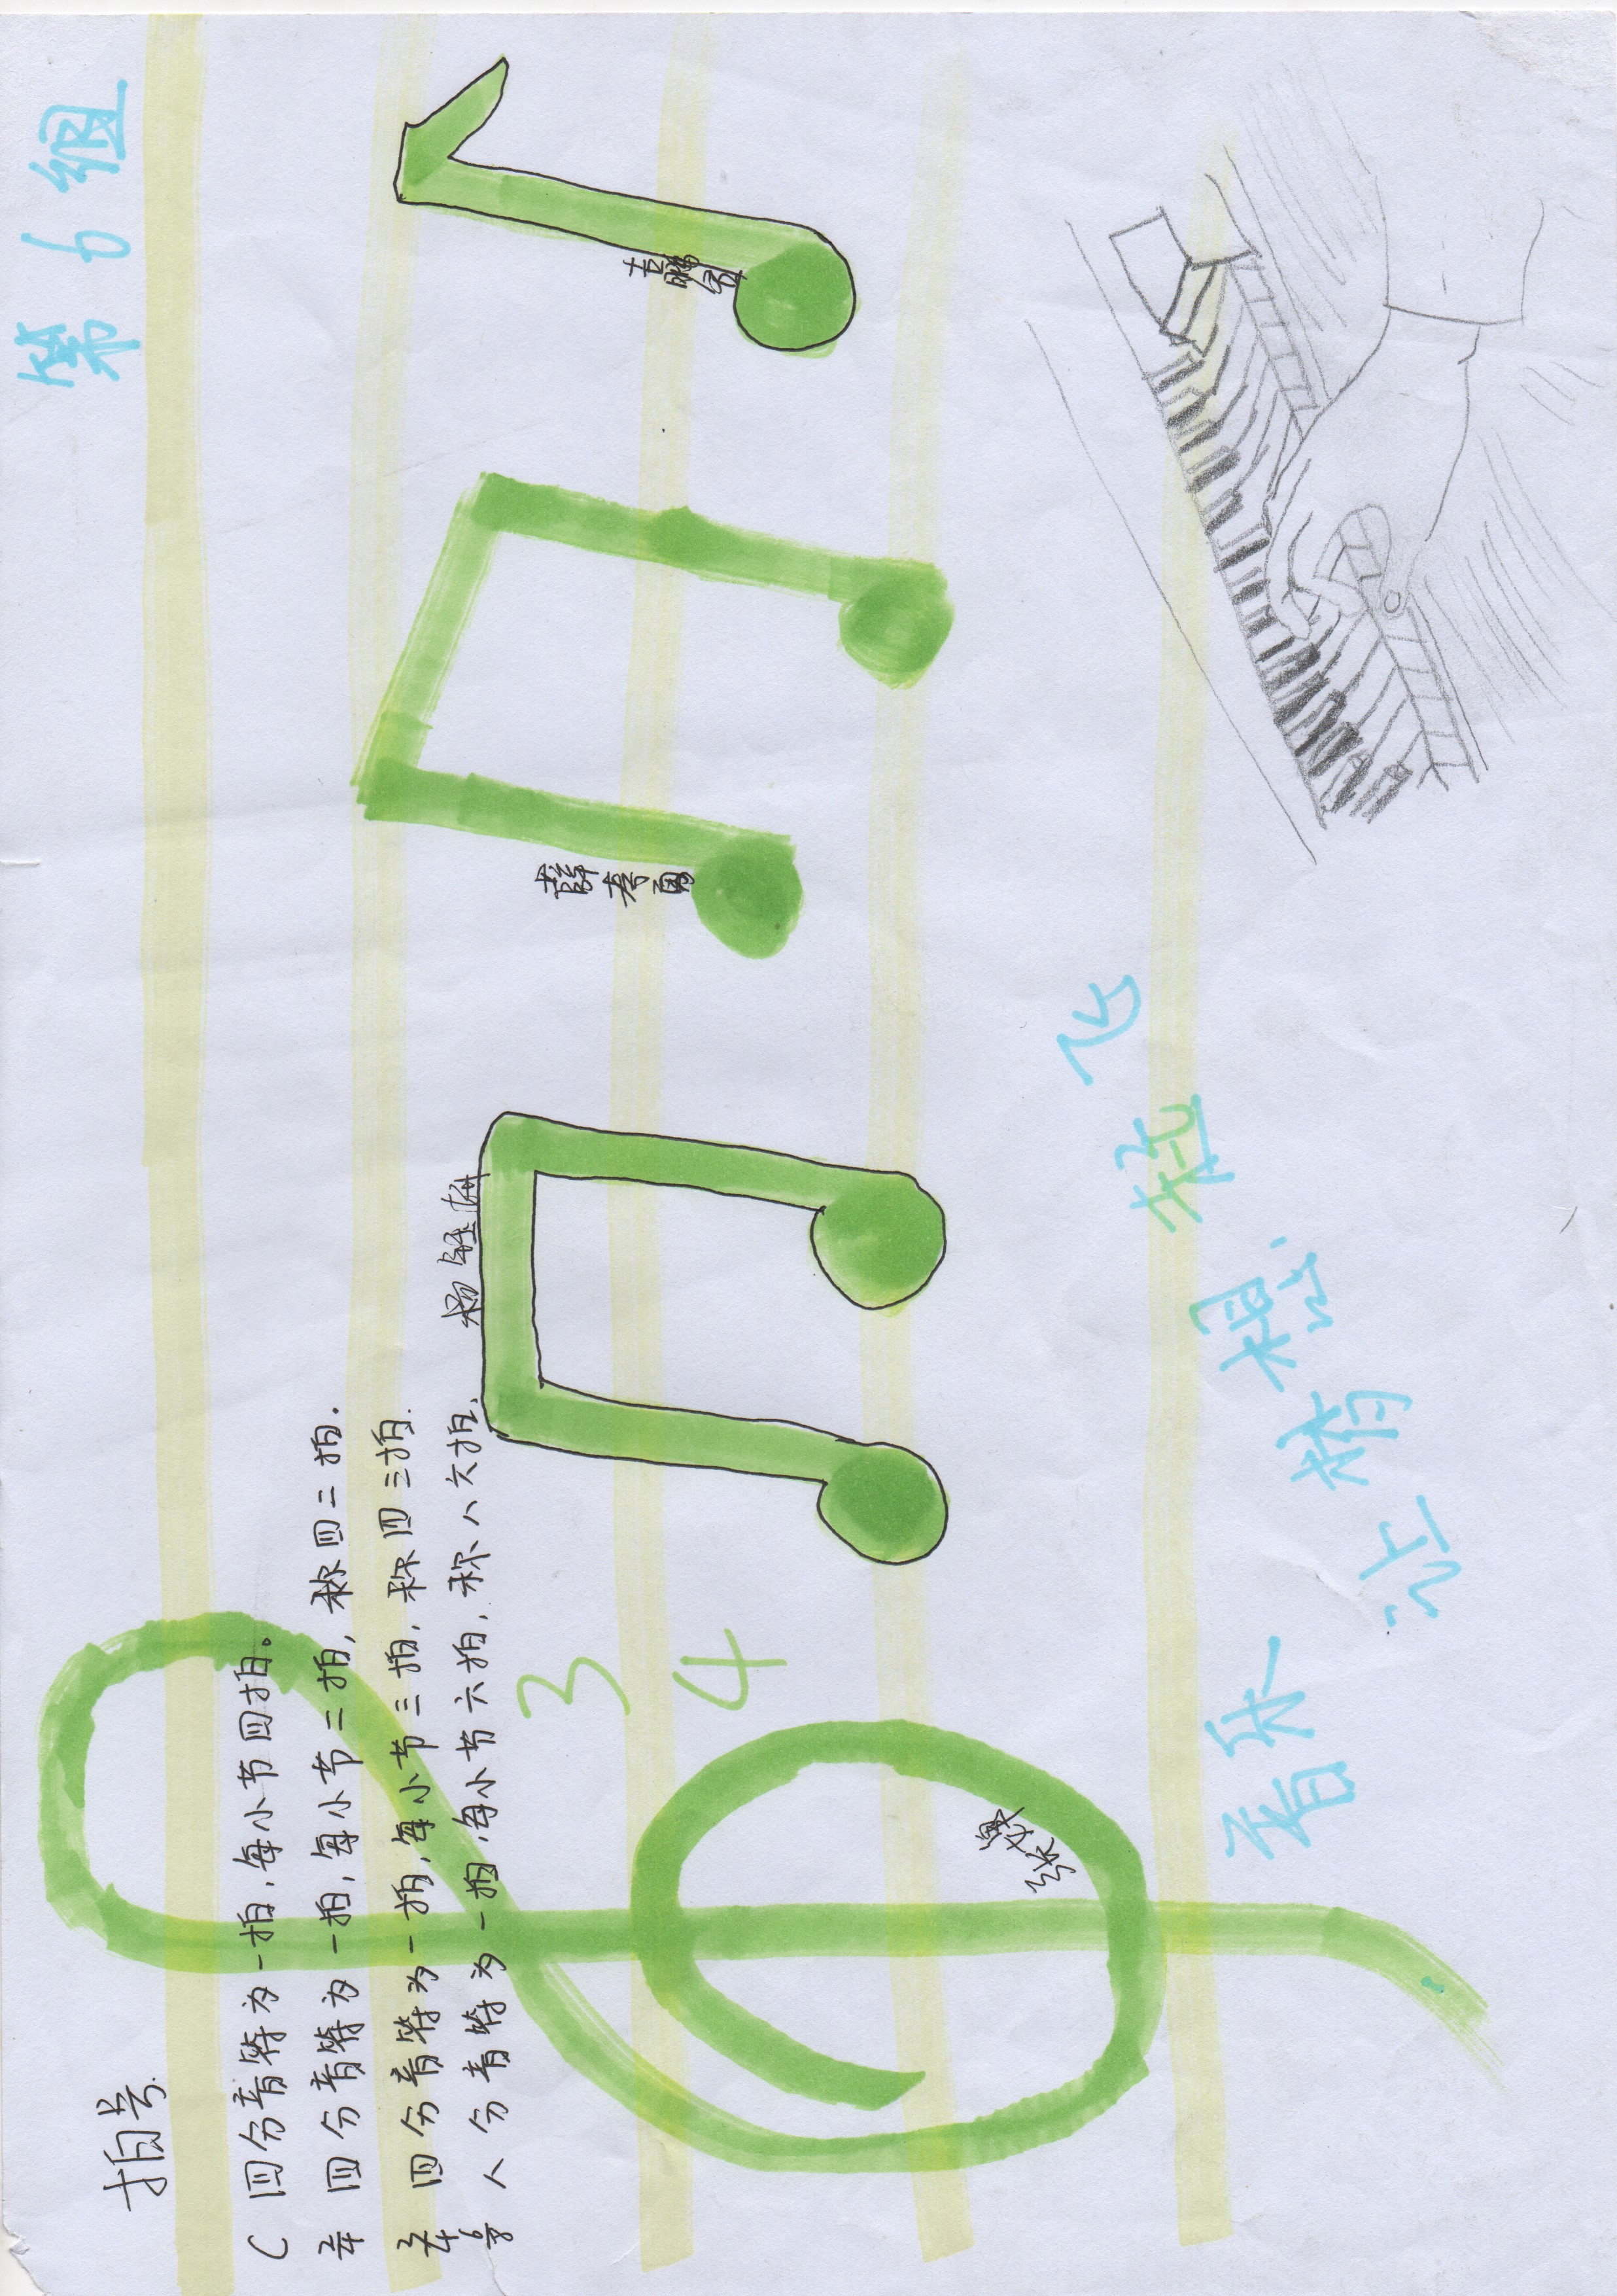 第6组
拍号
C 四分音符为一拍,每小节四拍。
2/4 四分音符为一拍,每小节二拍,称四二拍.
3/4 四分音符为一拍,每小节三拍,称四三拍.
6/8 八分音符为一拍,每小节六拍,称八六拍.
3
4
音乐 让情想 绽飞